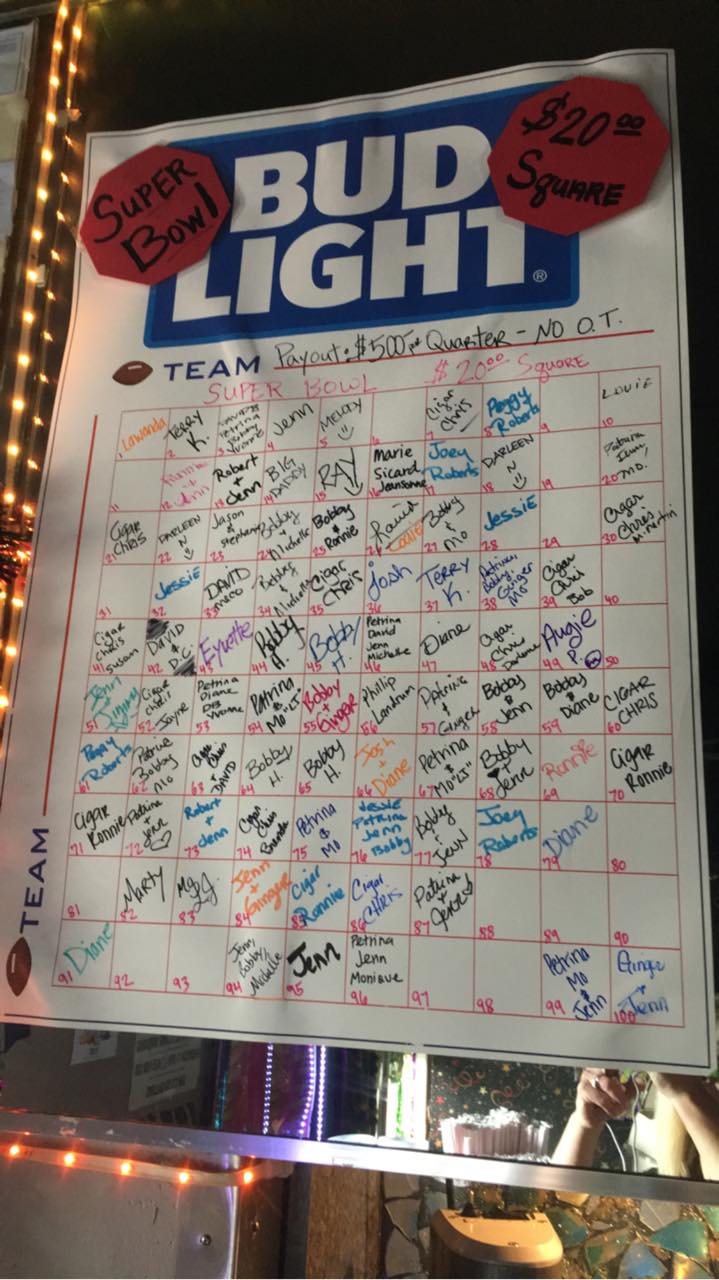 SUPER
BOWL
BUD
LIGHT
®
$20.00
SQUARE
TEAM
Payout: $500 per Quarter - NO O.T.
SUPER BOWL $20.00 SQUARE
1 Lawanda
2 TERRY K.
3 Petrina Bobby Yvonne
4 Jenn
5 MELODY
6
7 Cigar Chris
8 Peggy Roberts
9
10 LOUIE
11
12
13 Robert + Jenn
14 BIG DADDY
15 RAY
16 Marie Sicard Jeansonne
17 Joey Roberts
18 DARLEEN N
19
20 MO.
21 Cigar CHRIS
22 DARLEEN N
23 Jason & Stephanie
24 Bobby & Michelle
25 Bobby & Ronnie
26
27 Bobby & MO
28 JESSIE
29
30 Cigar Chris Martin
31
32 JESSIE
33 DAVID
34 Bobby & Michelle
35 Cigar CHRIS
36 Josh
37 TERRY K.
38 Petrina Bobby Ginger MO
39 Cigar Chris Bob
40
41 Cigar Chris Susan
42 DAVID & D.C.
43 Eyvette
44 Bobby H.
45 Bobby H.
46 Petrina David Jenn Michelle
47 Diane
48 Cigar Chris Darlene
49 Augie P.
50
51 Jenn Jimmy
52 Cigar Chris Jayne
53 Petrina Diane DB Yvonne
54 Petrina & MO "LJ"
55 Bobby + Ginger
56 Phillip Landrum
57 Petrina & Ginger
58 Bobby & Jenn
59 Bobby & Diane
60 CIGAR CHRIS
61 Peggy Roberts
62 Petrina Bobby MO
63 Cigar Chris & DAVID
64 Bobby H.
65 Bobby H.
66 Josh + Diane
67 Petrina & MO "LJ"
68 Bobby Jenn
69 Ronnie
70 Cigar Ronnie
71 Cigar Ronnie
72 Petrina + Jenn
73 Robert + Jenn
74 Cigar Chris Brenda
75 Petrina & MO
76 JESSIE Petrina Jenn Bobby
77 Bobby + JENN
78 Joey Roberts
79 Diane
80
81
82 Marty
83
84 Jenn + Ginger
85 Cigar Ronnie
86 Cigar CHRIS
87 Petrina + Jenn
88
89
90
91 Diane
92
93
94 Jenn Bobby Michelle
95 Jenn
96 Petrina Jenn Monique
97
98
99 Petrina MO & Jenn
100 Ginger + Jenn
TEAM